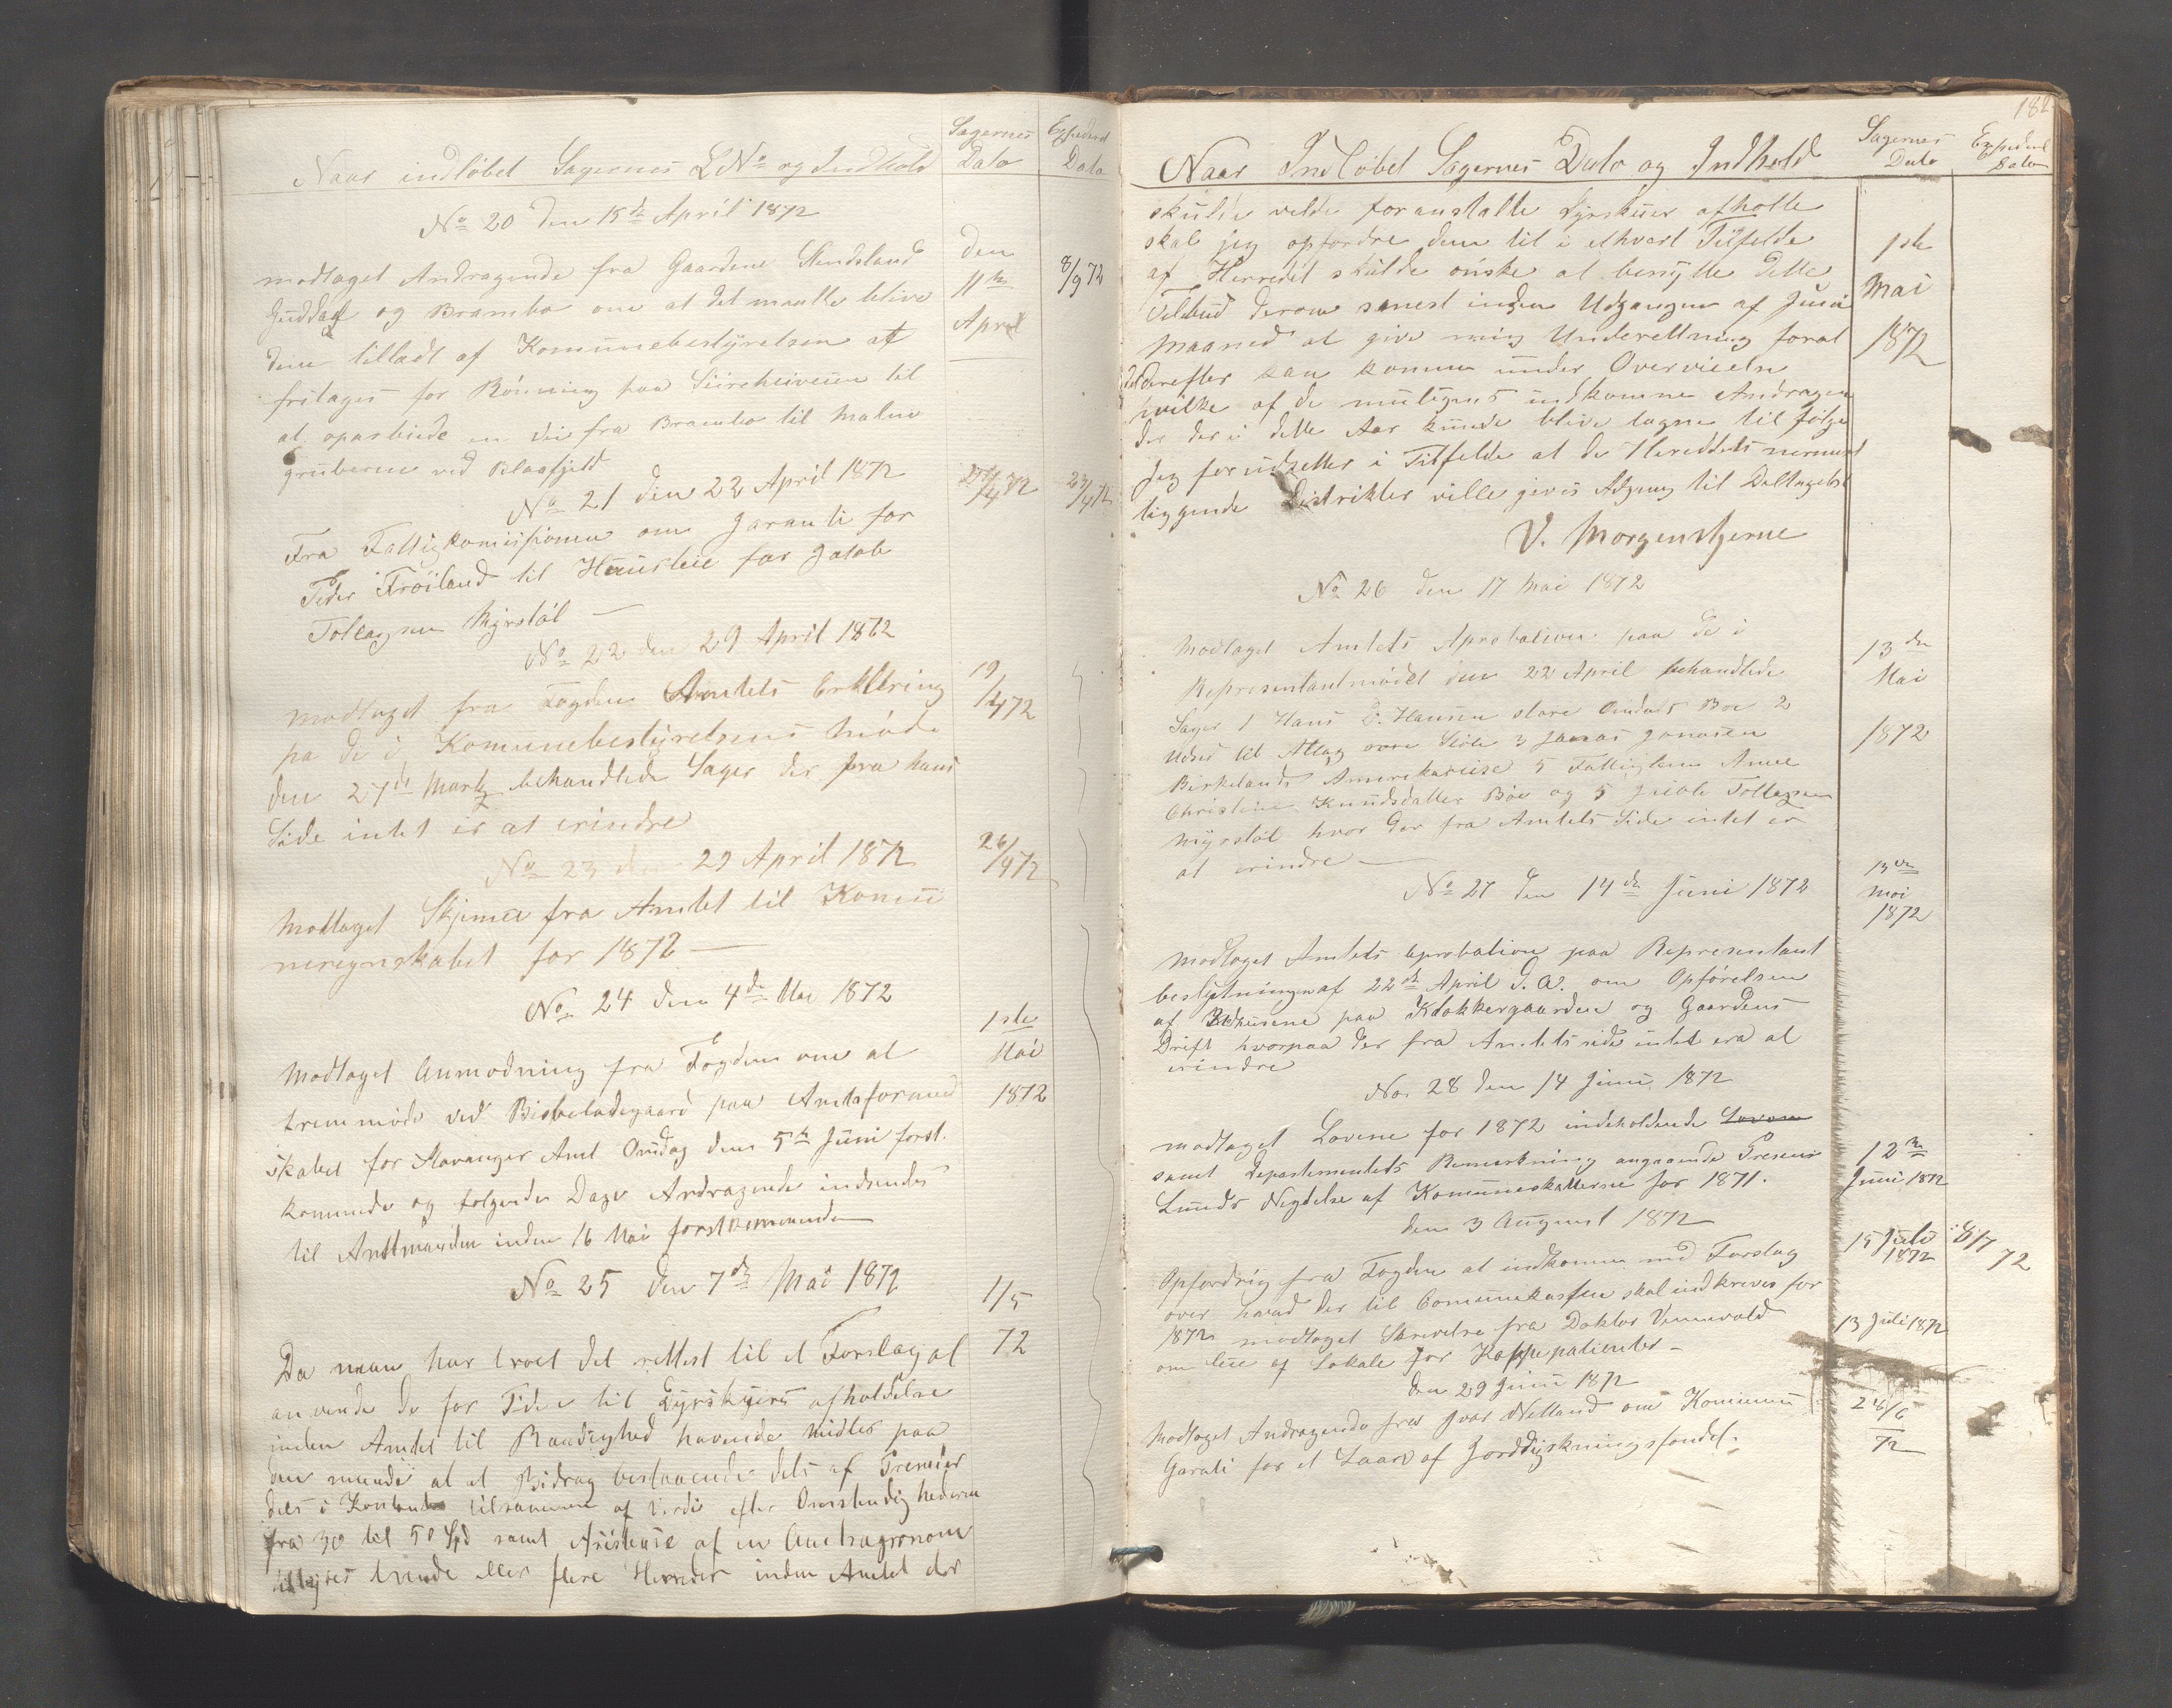 Naar indløbet Sagernes LNo og Indhold
Sagernes Dato
Expederet Dato
No 20 den 15de April 1872
den 11te April
8/9 72
modtaget Andragende fra Gaardene Skndsland
Guddal og Brambo om at det maatte blive
dem tilladt af Komunebestyrelsen at
fritages for Rønning paa Siireheiveien til
at oparbiede en Vei fra Brambo til Malm
gruberne ved Blaafjeld
No 21 den 22 April 1872
22/4 72
23/4 72
Fra Fattigkomissionen om Garanti for
Peder Frøiland til Huusleie for Jakob
Tollagsen Myrstøl —
No 22 den 29 April 1872
19/4 72
modtaget fra Fogden Amtets Erklering
pa de i Komunebestyrelsens Møde
den 27de Marts behandlede Sager der fra hans
Side intet er at erindre
No 23 den 29 April 1872
26/4 72
Modtaget Skjema fra Amtet til Komu
neregnskabet for 1872 —
No 24 den 4de Mai 1872
1ste Mai 1872
Modtaget Anmodning fra Fogden om at
fremmøde ved Bispeladegaard paa Amtsformed
skabet for Stavanger Amt Onsdag den 5te Juni forst.
kommende og følgende Dage Andragende indsendes
til Amtmanden inden 16 Mai førstkommende
No 25 den 7de Mai 1872
1/5 72
Da man har troet det rettest til et Forslag at
anvende de for Tiden til Dyrskuers afholdelse
inden Amtet til Raadighed havende Midler paa
den maade at et Bidrag bestaaende dels af Premier
dels i Kontant tilsammen af Verdi efter Omstendighederne
fra 30 til 50 Spd samt Asistense af en Amtsagronom
tilbydes hvede eller flere Herreder inden Amtet der
182
Naar Indløbet Sagernes Dato og Indhold
Sagernes Dato
Expederet Dato
skulde velde foranstalte Dyrskuer afholte
skal jeg opfordre dem til i ethvert Tilfelde
af Herredet skulde ønske at benytte dette
Tilbud derom senest inden Udgangen af Juni
Maaned at give mig Underettning forat
det derefter kan komme under Overveielse
hvilke af de muligens indkomne Andragen
der der i dette Aar kunde blive tagne til følge
Jeg forudsetter i Tilfelde at de Hereddets nermest
liggende Distrikter ville gives Adgang til Deltagelse
1ste Mai 1872
V. Morgenstjerne
No 26 den 17 Mai 1872
13de Mai 1872
Modtaget Amtets Aprobation paa de i
Representantmødet den 22 April behandlede
Sager 1 Hans E. Hansen store Omdals Boe 2
Udsed til Attag 3 Jonas Jonasen
Birkelands Amerikareise 5 Fattiglem Anne
Christine Knudsdatter Bøe og 5 Jacob Tollagsen
Myrstøl hvor der fra Amtets Side intet er
at erindre —
No 27 den 14de Juni 1872
13de Mai 1872
modtaget Amtets aprobation paa Representant
beslytningen af 22de April d. A. om Opførelsen
af Udhusene paa Klokkergaarden og Gaardens
Drift hvorpaa der fra Amtets side intet era at
erindre
No. 28 den 14 Juni 1872
modtaget Lovene for 1872 indeholdende Lovene
samt Departementets Bemerkning angaaende Presens
Lunds Negtelse af Komuneskatterne for 1871.
12te Juni 1872
den 3 August 1872
15 Juli 1872
8/7 72
Opfordrig fra Fogden at indkomme med Forslag
over hvad der til Comunekassen skal indkreves for
1872 modtaget Skrivelse fra Doktor Vennevold
om leie af Lokale for Koppepatienter —
13 Juli 1872
den 29 Juni 1872
28/6 72
Modtaget Andragende fra Ivar Netland om Kommunu
Garati for et Laan af Jorddyrkningsfondet.